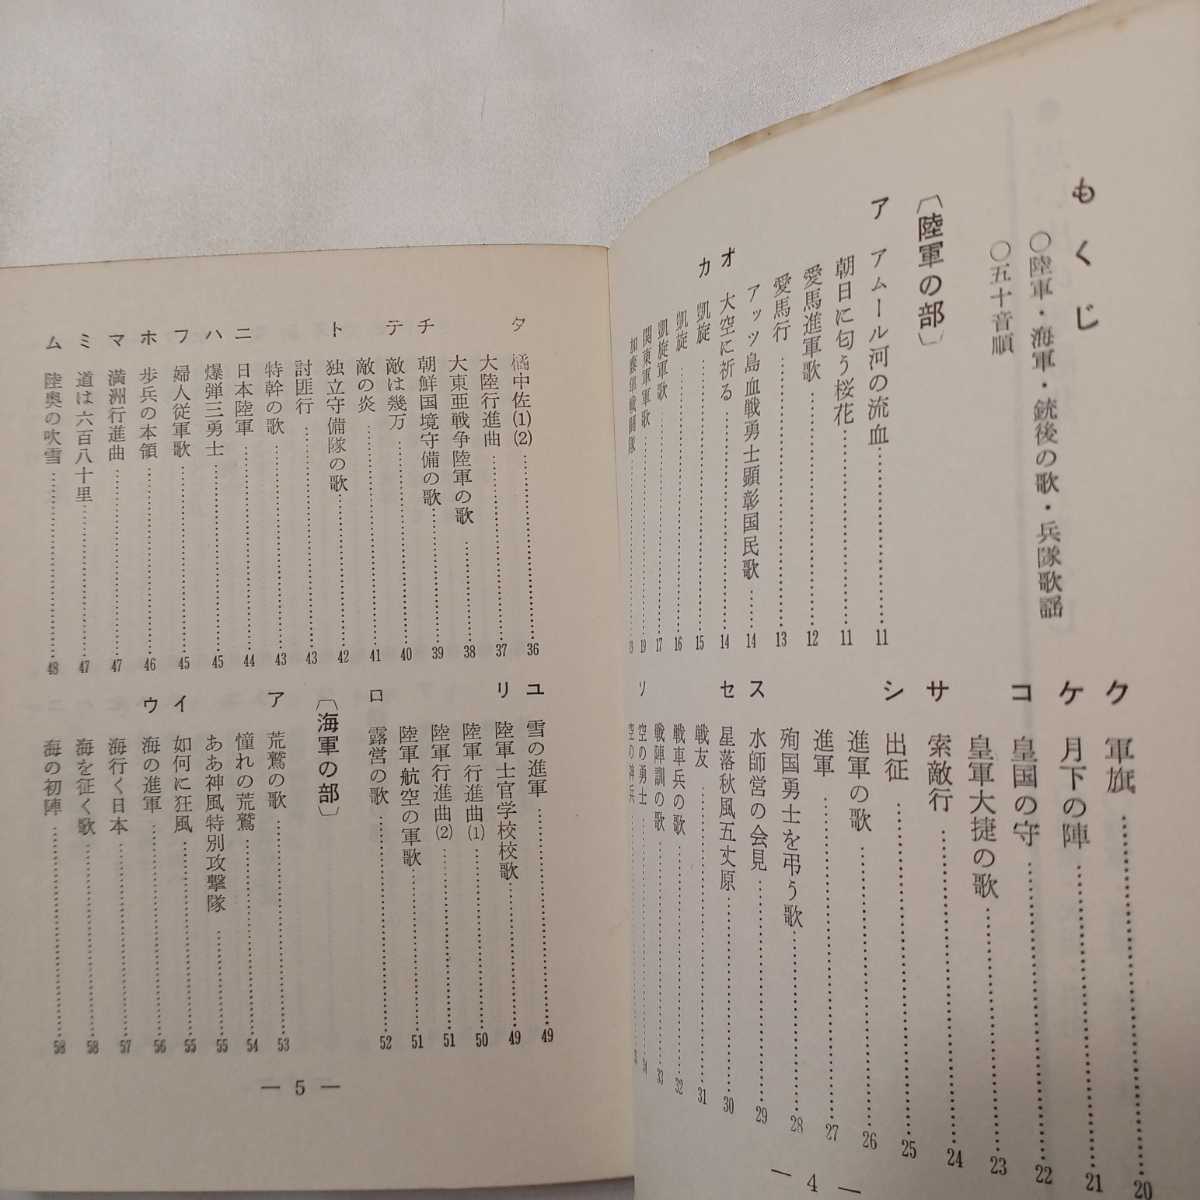 もくじ
○陸軍・海軍・銃後の歌・兵隊歌謡
○五十音順
〔陸軍の部〕
ア アムール河の流血………11
朝日に匂う桜花………11
愛馬進軍歌………12
愛馬行………13
アッツ島血戦勇士顕彰国民歌………14
オ 大空に祈る………14
カ 凱旋………15
凱旋………16
凱旋軍歌………17
関東軍軍歌………19
加藤隼戦闘隊………19
ク 軍旗………20
ケ 月下の陣………21
コ 皇国の守………22
皇軍大捷の歌………23
サ 索敵行………24
シ 出征………25
進軍の歌………26
進軍………27
殉国勇士を弔う歌………28
ス 水師営の会見………29
セ 星落秋風五丈原………30
戦友………31
戦車兵の歌………32
戦陣訓の歌………33
ソ 空の勇士………34
空の神兵………35
— 4 —
タ 橘中佐(1)(2)………36
大陸行進曲………37
大東亜戦争陸軍の歌………38
チ 朝鮮国境守備の歌………39
テ 敵は幾万………40
敵の炎………41
ト 独立守備隊の歌………42
討匪行………43
特幹の歌………43
ニ 日本陸軍………44
ハ 爆弾三勇士………45
フ 婦人従軍歌………45
ホ 歩兵の本領………46
マ 満洲行進曲………47
ミ 道は六百八十里………47
ム 陸奥の吹雪………48
ユ 雪の進軍………49
リ 陸軍士官学校校歌………49
陸軍行進曲(1)………50
陸軍行進曲(2)………51
陸軍航空の軍歌………51
ロ 露営の歌………52
〔海軍の部〕
ア 荒鷲の歌………53
憧れの荒鷲………54
ああ神風特別攻撃隊………55
イ 如何に狂風………55
ウ 海の進軍………56
海行く日本………57
海を征く歌………58
海の初陣………58
— 5 —